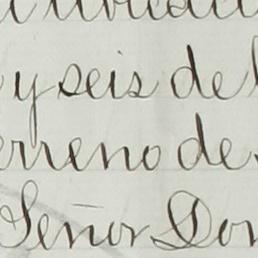 y seis de
erreno de
Señor Don